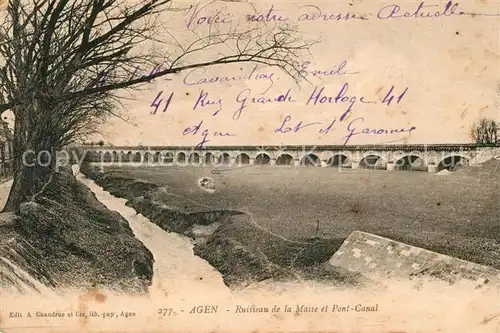 Voici notre adresse Actuelle
Mr Cavantou Emile
41 Rue Grande Horloge 41
Agen Lot et Garonne
277. - AGEN - Ruisseau de la Masse et Pont-Canal
Edit A Chaudruc et Cie, lith.-pap., Agen